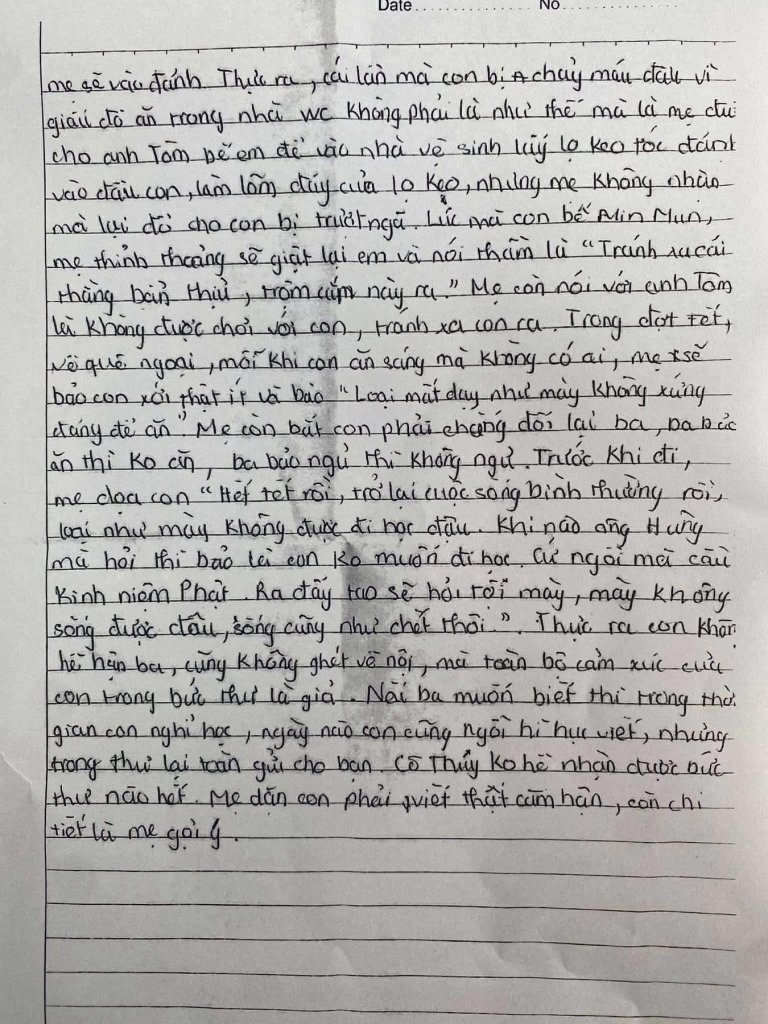 Date............... No...............
mẹ sẽ vào đánh. Thực ra, cái lần mà con bị chảy máu đầu vì
giấu đồ ăn trong nhà wc không phải là như thế mà là mẹ đưa
cho anh Tôm bế em để vào nhà vệ sinh lấy lọ keo tóc đánh
vào đầu con, làm lõm đáy của lọ keo, nhưng mẹ không nhận
mà lại đổ cho con bị trượt ngã. Lúc mà con bế Min Mun,
mẹ thỉnh thoảng sẽ giật lại em và nói thầm là "Tránh xa cái
thằng bẩn thỉu, trộm cắp này ra." Mẹ còn nói với anh Tôm
là không được chơi với con, tránh xa con ra. Trong đợt tết,
về quê ngoại, mỗi khi con ăn sáng mà không có ai, mẹ sẽ
bảo con xới thật ít và bảo "Loại mất dạy như mày không xứng
đáng để ăn". Mẹ còn bắt con phải chống đối lại ba, ba bảo
ăn thì ko ăn, ba bảo ngủ thì không ngủ. Trước khi đi,
mẹ dọa con "Hết tết rồi, trở lại cuộc sống bình thường rồi,
loại như mày không được đi học đâu. Khi nào ông Hưng
mà hỏi thì bảo là con ko muốn đi học. Cứ ngồi mà cầu
kinh niệm Phật. Ra đấy tao sẽ hỏi tội mày, mày không
sống được đâu, sống cũng như chết thôi.". Thực ra con khôn
hề hận ba, cũng không ghét về nội, mà toàn bộ cảm xúc của
con trong bức thư là giả. Nói ba muốn biết thì trong thời
gian con nghỉ học, ngày nào con cũng ngồi hì hục viết, nhưng
trong thư lại toàn gửi cho bạn. Cô Thủy ko hề nhận được bức
thư nào hết. Mẹ dặn con phải viết thật căm hận, còn chi
tiết là mẹ gợi ý.